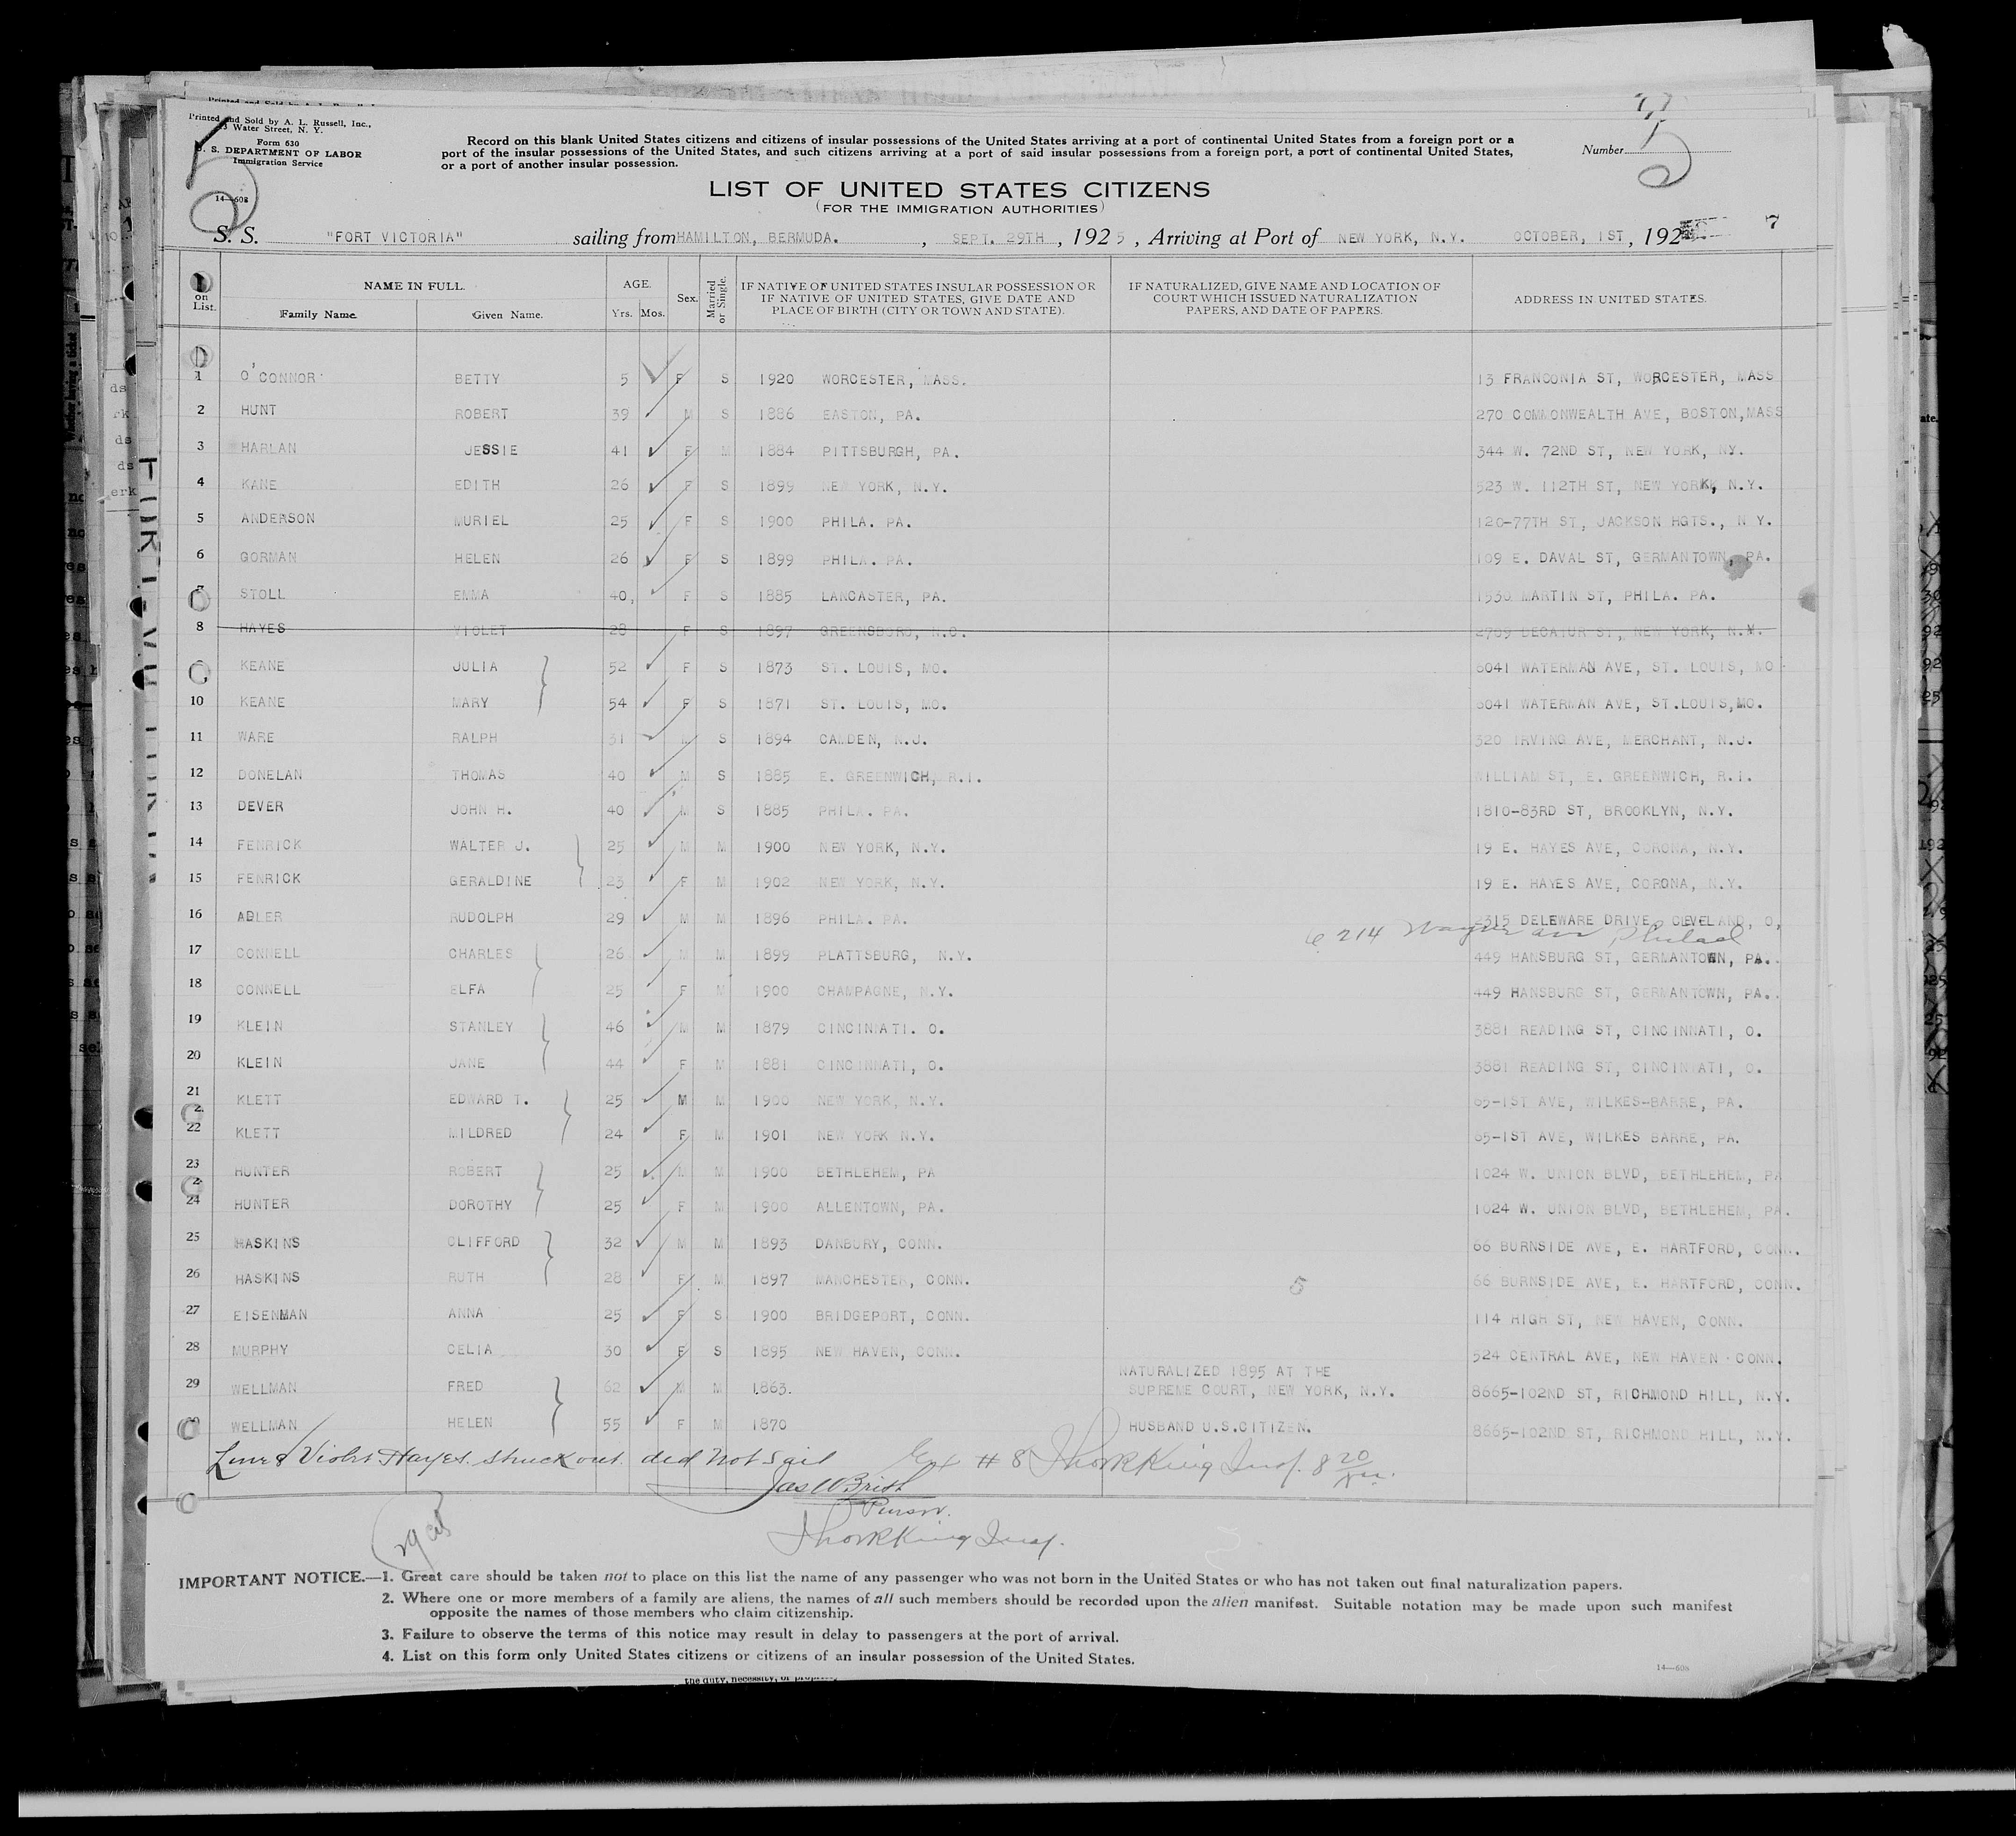 Printed and Sold by A. L. Russell, Inc.,
Water Street, N. Y.
Form 630
U. S. DEPARTMENT OF LABOR
Immigration Service
14—608
5
Record on this blank United States citizens and citizens of insular possessions of the United States arriving at a port of continental United States from a foreign port or a
port of the insular possessions of the United States, and such citizens arriving at a port of said insular possessions from a foreign port, a port of continental United States,
or a port of another insular possession.
Number 5
LIST OF UNITED STATES CITIZENS
(FOR THE IMMIGRATION AUTHORITIES)
S. S. "FORT VICTORIA" sailing from HAMILTON, BERMUDA. , SEPT. 29TH , 1925 , Arriving at Port of NEW YORK, N.Y. OCTOBER, 1ST , 192 7
on List. NAME IN FULL. Family Name. Given Name. AGE. Yrs. Mos. Sex. Married or Single. IF NATIVE OF UNITED STATES INSULAR POSSESSION OR IF NATIVE OF UNITED STATES, GIVE DATE AND PLACE OF BIRTH (CITY OR TOWN AND STATE). IF NATURALIZED, GIVE NAME AND LOCATION OF COURT WHICH ISSUED NATURALIZATION PAPERS, AND DATE OF PAPERS. ADDRESS IN UNITED STATES.
1 O'CONNOR BETTY 5 F S 1920 WORCESTER, MASS. 13 FRANCONIA ST, WORCESTER, MASS
2 HUNT ROBERT 39 M S 1886 EASTON, PA. 270 COMMONWEALTH AVE, BOSTON,MASS
3 HARLAN JESSIE 41 F M 1884 PITTSBURGH, PA. 344 W. 72ND ST, NEW YORK, NY.
4 KANE EDITH 26 F S 1899 NEW YORK, N.Y. 523 W. 112TH ST, NEW YORK, N.Y.
5 ANDERSON MURIEL 25 F S 1900 PHILA. PA. 120-77TH ST, JACKSON HGTS., N Y.
6 GORMAN HELEN 26 F S 1899 PHILA. PA. 109 E. DAVAL ST, GERMANTOWN, PA.
7 STOLL EMMA 40, F S 1885 LANCASTER, PA. 1530 MARTIN ST, PHILA. PA.
8 HAYES VIOLET 28 F S 1897 GREENSBORO, N.C. 2709 DECATUR ST, NEW YORK, N.Y.
KEANE JULIA 52 F S 1873 ST. LOUIS, MO. 6041 WATERMAN AVE, ST. LOUIS, MO
10 KEANE MARY 54 F S 1871 ST. LOUIS, MO. 6041 WATERMAN AVE, ST.LOUIS,MO.
11 WARE RALPH 31 M S 1894 CAMDEN, N.J. 320 IRVING AVE, MERCHANT, N.J.
12 DONELAN THOMAS 40 M S 1885 E. GREENWICH, R.I. WILLIAM ST, E. GREENWICH, R.I.
13 DEVER JOHN H. 40 M S 1885 PHILA. PA. 1810-83RD ST, BROOKLYN, N.Y.
14 FENRICK WALTER J. 25 M M 1900 NEW YORK, N.Y. 19 E. HAYES AVE, CORONA, N.Y.
15 FENRICK GERALDINE 23 F M 1902 NEW YORK, N.Y. 19 E. HAYES AVE, CORONA, N.Y.
16 ADLER RUDOLPH 29 M M 1896 PHILA. PA. 2315 DELEWARE DRIVE, CLEVELAND, O,
6214 Wayne ave Philad
17 CONNELL CHARLES 26 M M 1899 PLATTSBURG, N.Y. 449 HANSBURG ST, GERMANTOWN, PA.
18 CONNELL ELFA 25 F M 1900 CHAMPAGNE, N.Y. 449 HANSBURG ST, GERMANTOWN, PA.
19 KLEIN STANLEY 46 M M 1879 CINCINNATI. O. 3881 READING ST, CINCINNATI, O.
20 KLEIN JANE 44 F M 1881 CINCINNATI, O. 3881 READING ST, CINCINNATI, O.
21 KLETT EDWARD T. 25 M M 1900 NEW YORK, N.Y. 65-1ST AVE, WILKES-BARRE, PA.
22 KLETT MILDRED 24 F M 1901 NEW YORK N.Y. 65-1ST AVE, WILKES BARRE, PA.
23 HUNTER ROBERT 25 M M 1900 BETHLEHEM, PA 1024 W. UNION BLVD, BETHLEHEM, PA
24 HUNTER DOROTHY 25 F M 1900 ALLENTOWN, PA. 1024 W. UNION BLVD, BETHLEHEM, PA.
25 HASKINS CLIFFORD 32 M M 1893 DANBURY, CONN. 66 BURNSIDE AVE, E. HARTFORD, CONN.
26 HASKINS RUTH 28 F M 1897 MANCHESTER, CONN. 5 66 BURNSIDE AVE, E. HARTFORD, CONN.
27 EISENMAN ANNA 25 F S 1900 BRIDGEPORT, CONN. 114 HIGH ST, NEW HAVEN, CONN.
28 MURPHY CELIA 30 F S 1895 NEW HAVEN, CONN. 524 CENTRAL AVE, NEW HAVEN CONN.
29 WELLMAN FRED 62 M M 1863. NATURALIZED 1895 AT THE SUPREME COURT, NEW YORK, N.Y. 8665-102ND ST, RICHMOND HILL, N.Y.
WELLMAN HELEN 55 F M 1870 HUSBAND U.S.CITIZEN. 8665-102ND ST, RICHMOND HILL, N.Y.
Line 8 Violet Hayes struck out did not sail # 8 Insp. 8 20
Purser.
IMPORTANT NOTICE.—1. Great care should be taken not to place on this list the name of any passenger who was not born in the United States or who has not taken out final naturalization papers.
2. Where one or more members of a family are aliens, the names of all such members should be recorded upon the alien manifest. Suitable notation may be made upon such manifest
opposite the names of those members who claim citizenship.
3. Failure to observe the terms of this notice may result in delay to passengers at the port of arrival.
4. List on this form only United States citizens or citizens of an insular possession of the United States.
14—608